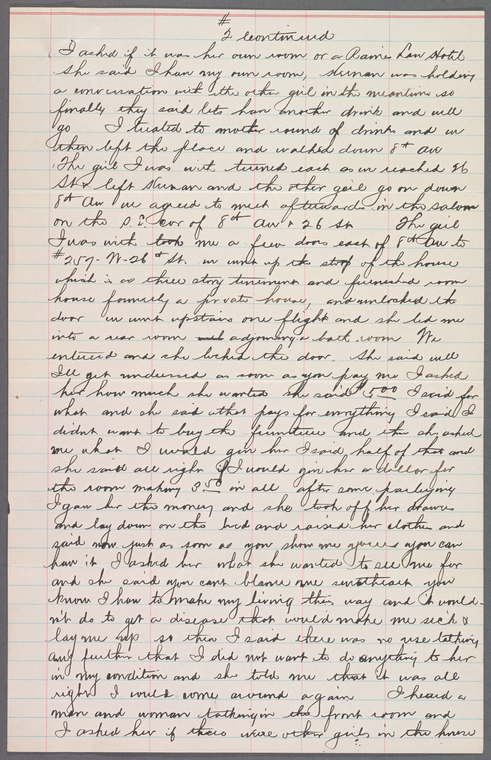 #
2 Continued
I asked if it was her own room or a Raines Law Hotel
she said I have my own room, Kernan was holding
a conversation with the other girl in the meantime so
finally they said lets have another drink and well
go I treated to another round of drinks and we
then left the place and walked down 8th Ave
The girl I was with turned east as we reached 26
St & left Kernan and the other girl go on down
8th Ave we agreed to meet afterwards in the saloon
on the S.E. cor of 8th Ave & 26 St The girl
I was with took me a few doors east of 8th Ave to
#257-W-26th St. we went up the stoop of the house
which is a three story tenement and furnished room
house formerly a private house, and unlocked the
door we went upstairs one flight and she led me
into a rear room adjoining a bath room We
entered and she locked the door. She said well
Ill get undressed as soon as you pay me I asked
her how much she wanted she said $5.00 I said for
what and she said that pays for everything I said I
didnt want to buy the furniture and the she asked
me what I would give her I said half of that and
she said all right if I would give her a dollar for
the room making 3.50 in all after some parleying
I gave her the money and she took off her drawers
and lay down on the bed and raised her clothes and
said now just as soon as you show me yours you can
have it I asked her what she wanted to see me for
and she said you cant blame me sweetheart you
know I have to make my living this way and it would-
n't do to get a disease that would make me sick &
lay me up so then I said there was no use talking
any further that I did not want to do anything to her
in my condition and she told me that it was all
right I could come around again I heard a
man and woman talking in the front room and
I asked her if there were other girls in the house